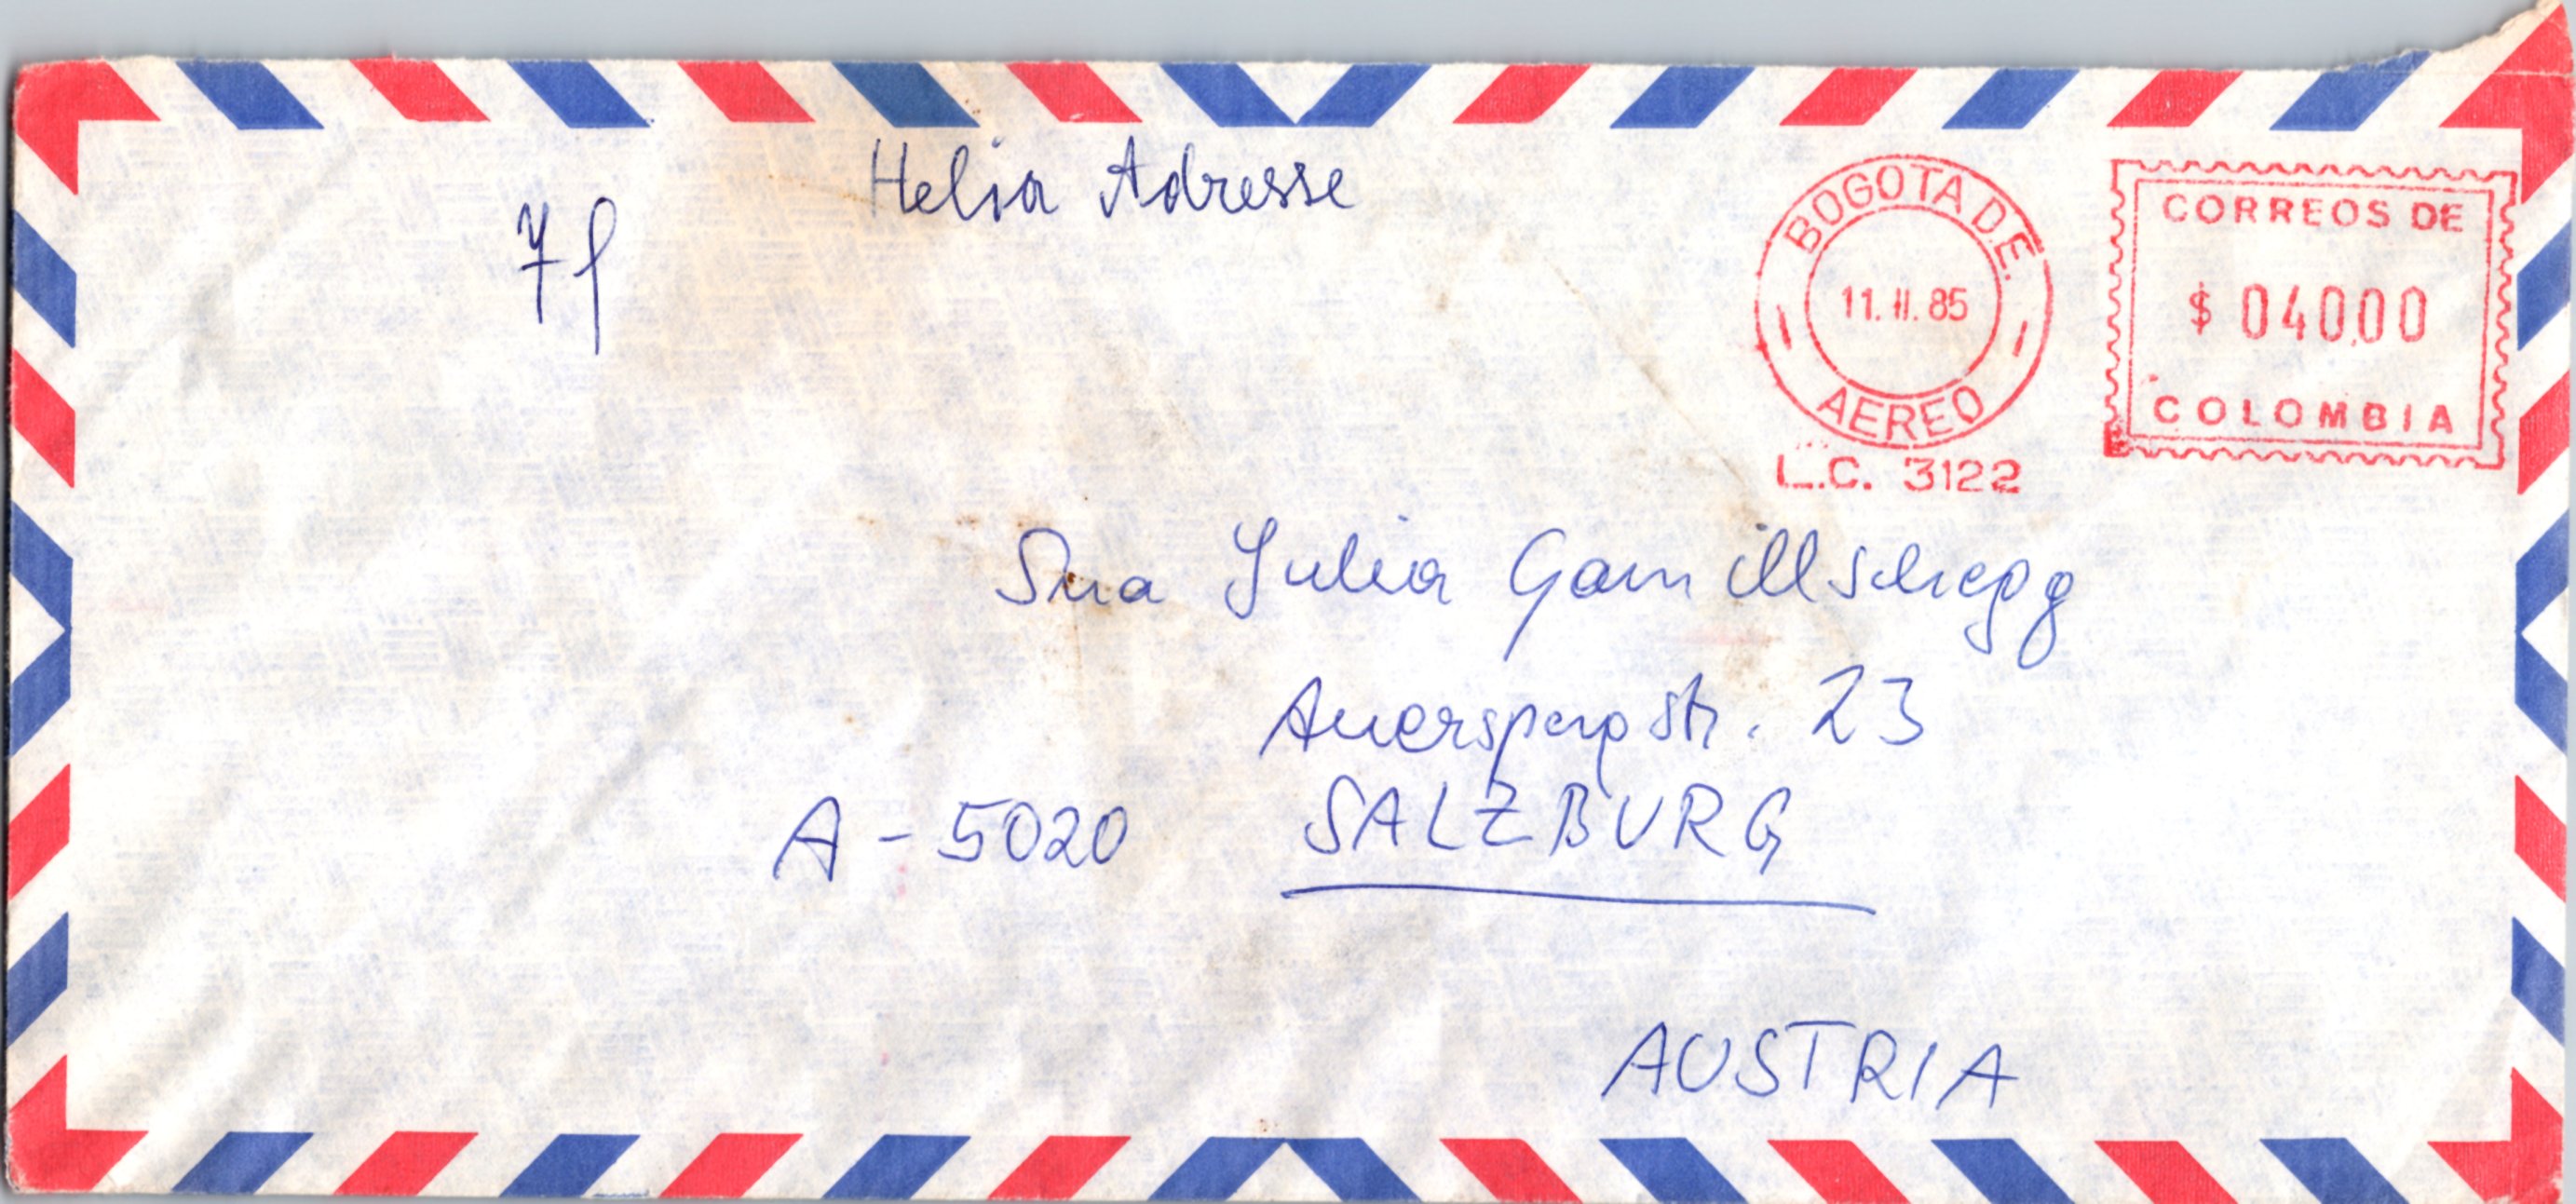 Helia Adresse
7f
BOGOTA D.E.
11. II. 85
AEREO
L.C. 3122
CORREOS DE
$ 04000
COLOMBIA
Sna Julia Gamillschegg
Auerspergstr. 23
A - 5020 SALZBURG
AUSTRIA